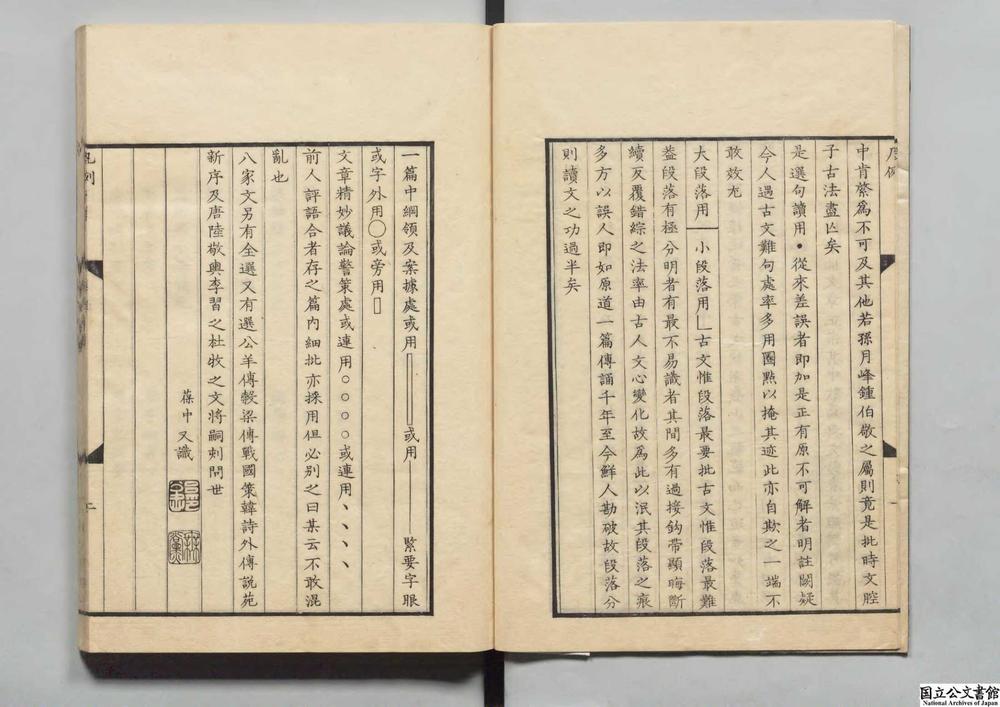 中肯綮爲不可及其他若孫月峰鍾伯敬之屬則竟是批時文腔
子古法盡亾矣
是選句讀用•從來差誤者即加是正有原不可解者明註闕疑
今人遇古文難句處率多用圈點以掩其迹此亦自欺之一端不
敢效尤
大段落用━小段落用∟古文惟段落最要批古文惟段落最難
葢段落有極分明者有最不易識者其間多有過接鈎帶顯晦斷
續反覆錯綜之法率由古人文心變化故爲此以泯其段落之痕
多方以誤人即如原道一篇傳誦千年至今鮮人勘破故段落分
則讀文之功過半矣
一篇中綱領及案據處或用▯或用│緊要字眼
或字外用◯或旁用▯
文章精妙議論警策處或連用○○○○或連用丶丶丶丶
前人評語合者存之篇內細批亦採用但必別之曰某云不敢混
亂也
八家文另有全選又有選公羊傳榖梁傳戰國策韓詩外傳說苑
新序及唐陸敬輿李習之杜牧之文將嗣刻問世
葆中又識
凡例
二
国立公文書館
National Archives of Japan